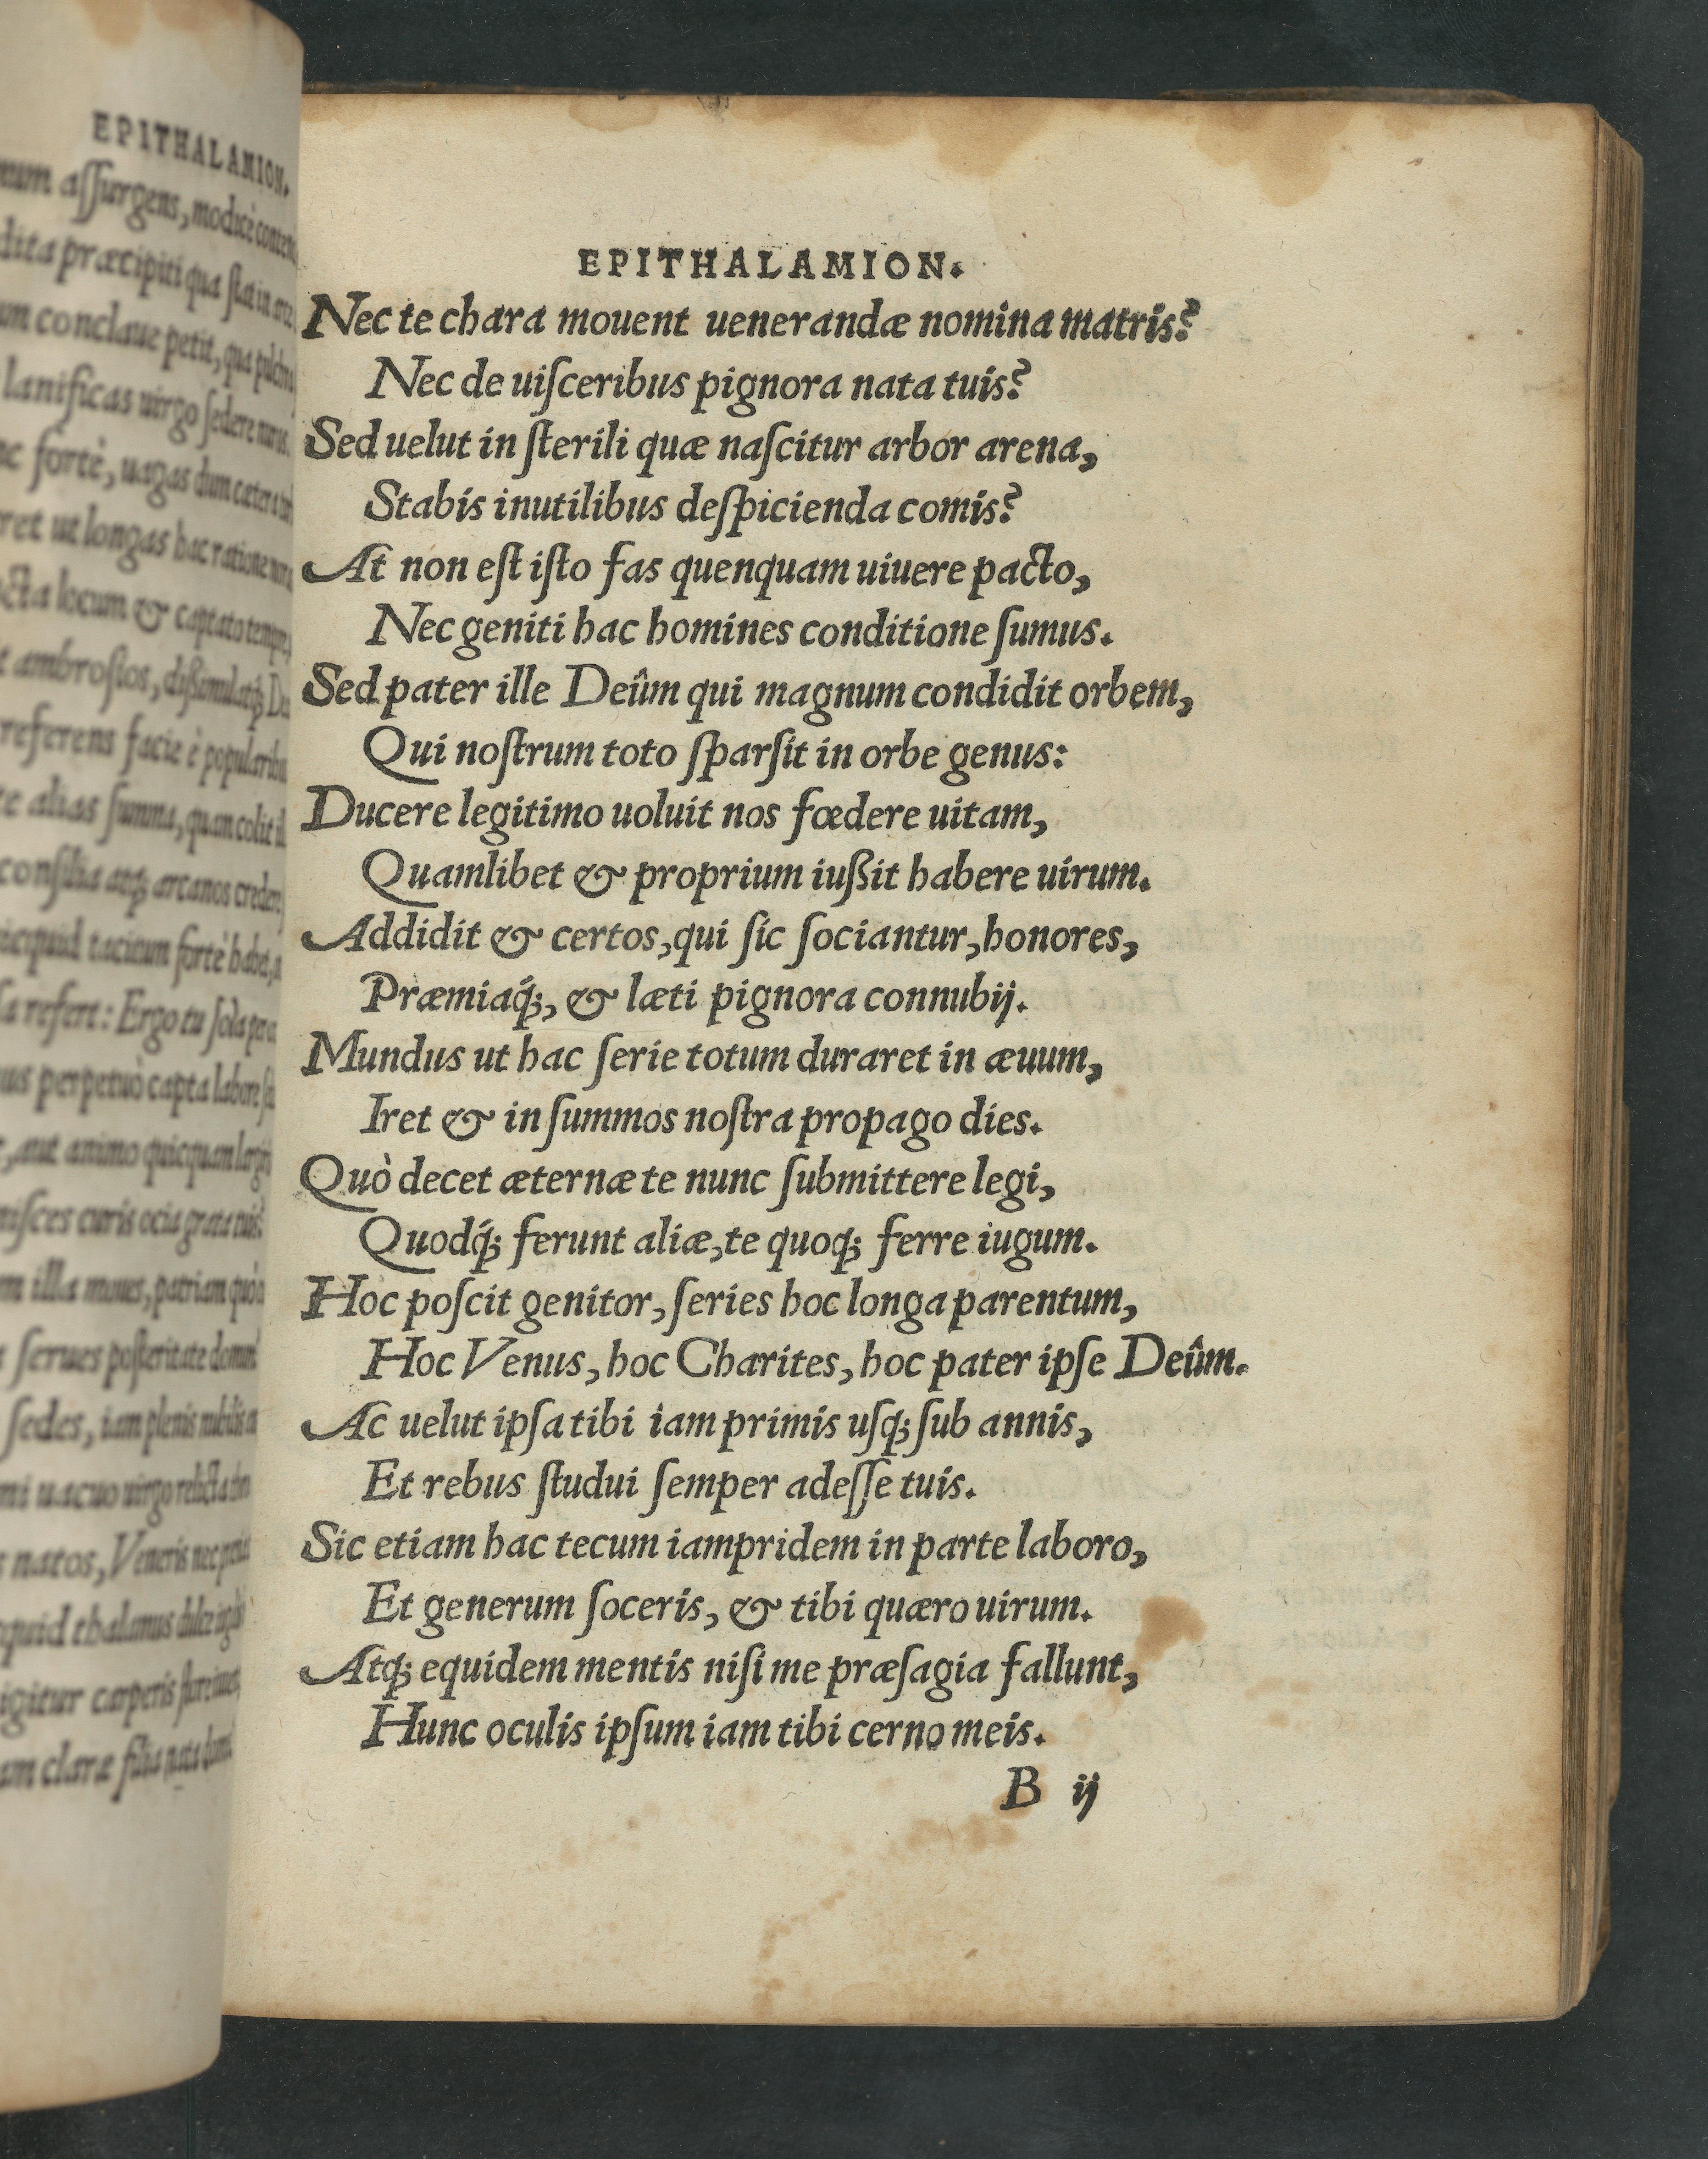 EPITHALAMION.
aſſurgens, modicè
præcipiti qua ſtat in
conclaue petit, qua
lanificas uirgo ſedere
fortè, uagas dum cætera
ut longas hac ratione
locum & captato
ambroſios, dißimulatq́;
referens facie è popularibus
alias ſumma, quam colit
conſilia atq; arcanos credere
tacitum fortè habet,
refert: Ergo tu ſola
perpetuò capta labore
aut animo quicquam
curis ocia grata tuis?
illa moues, patriam
ſerues poſteritate domum
ſedes, iam plenis nubilis
uacuo uirgo relicta
natos, Veneris nec
thalamus dulce
igitur carperis
claræ filia nata
EPITHALAMION.
Nec te chara mouent uenerandæ nomina matris?
Nec de uiſceribus pignora nata tuis?
Sed uelut in ſterili quæ naſcitur arbor arena,
Stabis inutilibus deſpicienda comis?
At non eſt iſto fas quenquam uiuere pacto,
Nec geniti hac homines conditione ſumus.
Sed pater ille Deûm qui magnum condidit orbem,
Qui noſtrum toto ſparſit in orbe genus:
Ducere legitimo uoluit nos fœdere uitam,
Quamlibet & proprium iußit habere uirum.
Addidit & certos, qui ſic ſociantur, honores,
Præmiaq́;, & læti pignora connubij.
Mundus ut hac ſerie totum duraret in æuum,
Iret & in ſummos noſtra propago dies.
Quò decet æternæ te nunc ſubmittere legi,
Quodq́; ferunt aliæ, te quoq; ferre iugum.
Hoc poſcit genitor, ſeries hoc longa parentum,
Hoc Venus, hoc Charites, hoc pater ipſe Deûm.
Ac uelut ipſa tibi iam primis uſq; ſub annis,
Et rebus ſtudui ſemper adeſſe tuis.
Sic etiam hac tecum iampridem in parte laboro,
Et generum ſoceris, & tibi quæro uirum.
Atq; equidem mentis niſi me præſagia fallunt,
Hunc oculis ipſum iam tibi cerno meis.
B ij